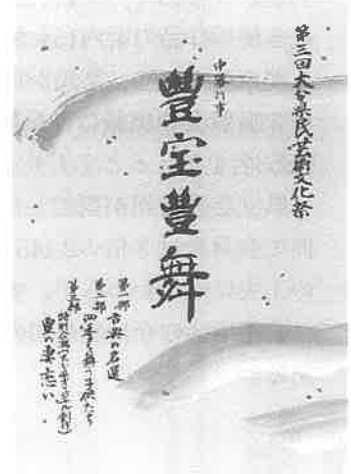 第三回大分県民芸術文化祭
中幕行事
豊宝豊舞
第一部
古典の名選
第二部
四季を舞う子供たち
第三部
豊の妻恋い